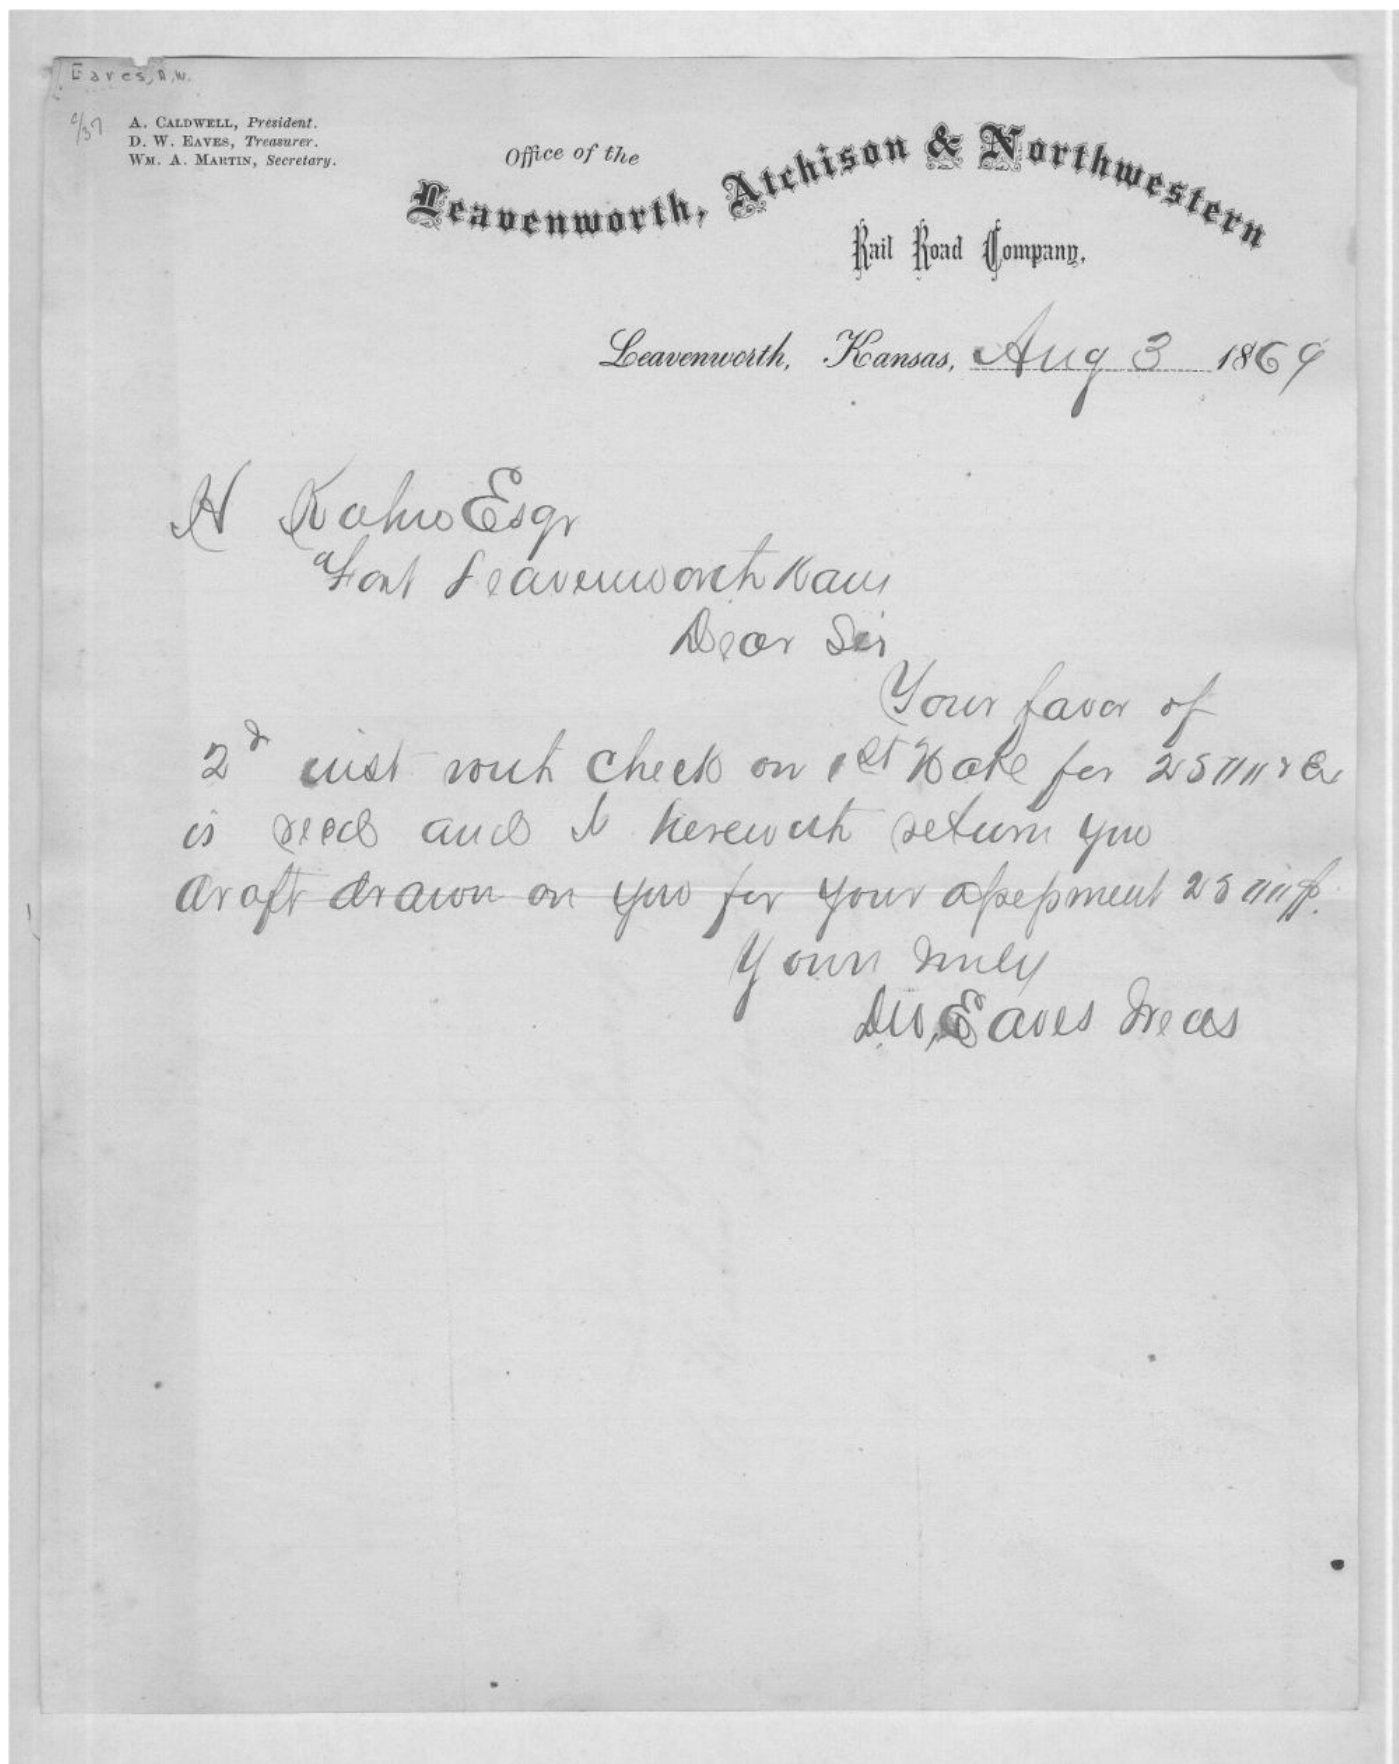 Eaves, D.W.
A. CALDWELL, President.
D. W. EAVES, Treasurer.
WM. A. MARTIN, Secretary.
Office of the
Leavenworth, Atchison & Northwestern
Rail Road Company.
Leavenworth, Kansas, Aug 3 1869
H Esqr
Fort Leavenworth Kans
Dear Sir
Your favor of
2d inst with check on 1st for
is recd and I herewith return you
draft drawn on you for your assessment
Yours truly
D.W. Eaves Treas